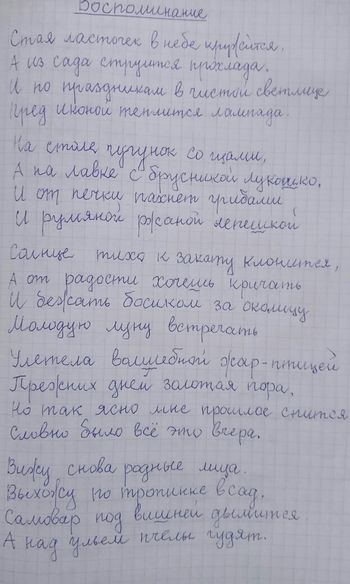 Воспоминание
Стая ласточек в небе кружится,
А из сада струится прохлада.
И по праздникам в чистой светлице
Пред иконой теплится лампада.
На столе чугунок со щами,
А на лавке с брусникой лукошко,
И от печки пахнет грибами
И румяной ржаной лепешкой
Солнце тихо к закату клонится,
А от радости хочешь кричать
И бежать босиком за околицу
Молодую луну встречать
Улетела волшебной жар-птицей
Прежних дней золотая пора,
Но так ясно мне прошлое снится
Словно было всё это вчера.
Вижу снова родные лица.
Выхожу по тропинке в сад,
Самовар под вишней дымится
А над ульем пчёлы гудят.